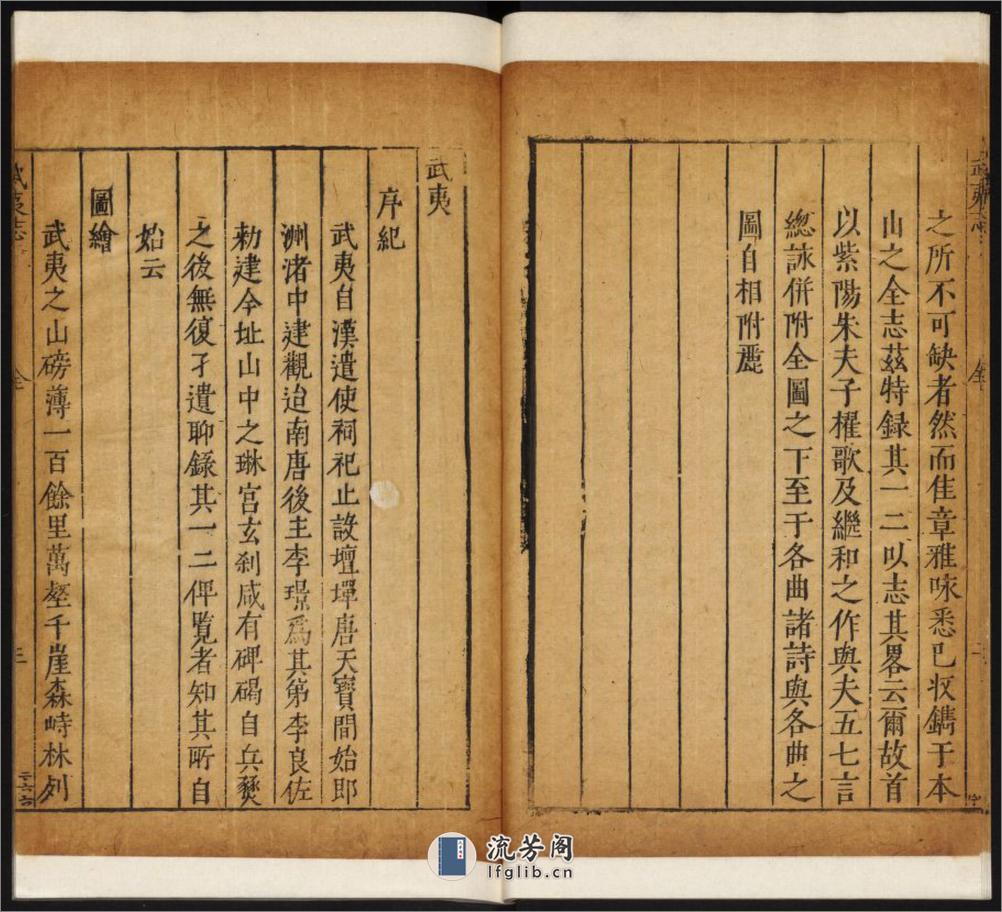 之所不可缺者然而佳章雅咏悉已收鐫于本
山之全志茲特録其一二以志其畧云爾故首
以紫陽朱夫子櫂歌及繼和之作與夫五七言
總詠併附全圖之下至于各曲諸詩與各曲之
圖自相附麗
武夷
序紀
武夷自漢遣使祠祀止設壇墠唐天寶間始即
洲渚中建觀迨南唐後主李璟爲其第李良佐
勅建今址山中之琳宫玄刹咸有碑碣自兵燹
之後無復孑遺聊錄其一二俾覧者知其所自
始云
圖繪
武夷之山磅薄一百餘里萬壑千崖森峙林列
武夷志
全
三
流芳阁
lfglib.cn